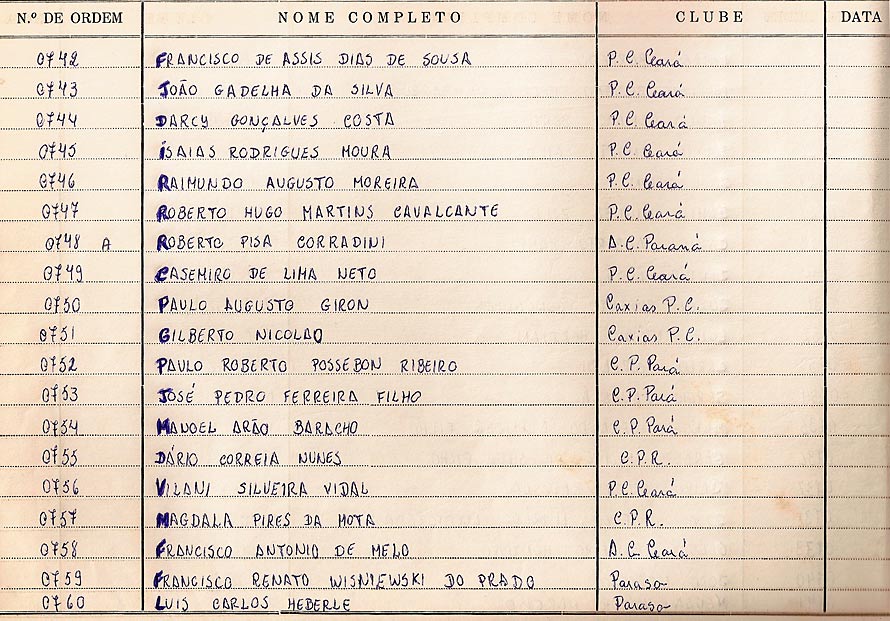 N.º DE ORDEM NOME COMPLETO CLUBE DATA
0742 FRANCISCO DE ASSIS DIAS DE SOUSA P. C. Ceará
0743 JOÃO GADELHA DA SILVA P. C. Ceará
0744 DARCY GONÇALVES COSTA P. C. Ceará
0745 ISAIAS RODRIGUES MOURA P. C. Ceará
0746 RAIMUNDO AUGUSTO MOREIRA P. C. Ceará
0747 ROBERTO HUGO MARTINS CAVALCANTE P. C. Ceará
0748 A ROBERTO PISA CORRADINI A. C. Paraná
0749 CASEMIRO DE LIMA NETO P. C. Ceará
0750 PAULO AUGUSTO GIRON Caxias P. C.
0751 GILBERTO NICOLAO Caxias P. C.
0752 PAULO ROBERTO POSSEBON RIBEIRO C. P. Pará
0753 JOSÉ PEDRO FERREIRA FILHO C. P. Pará
0754 MANOEL ARÃO BARACHO C. P. Pará
0755 DÁRIO CORREIA NUNES C. P. R.
0756 VILANI SILVEIRA VIDAL P. C. Ceará
0757 MAGDALA PIRES DA MOTA C. P. R.
0758 FRANCISCO ANTONIO DE MELO A. C. Ceará
0759 FRANCISCO RENATO WISNIEWSKI DO PRADO Parasa
0760 LUIS CARLOS HEBERLE Parasa